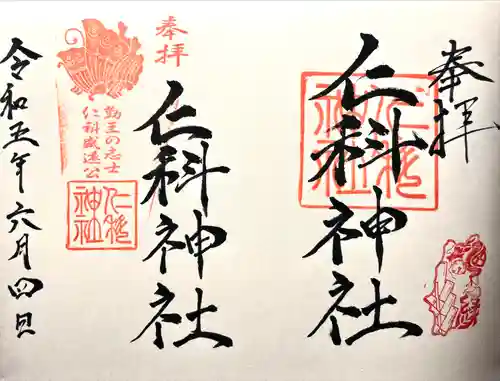 奉拝
仁科神社
仁科神社
奉拝
仁科神社
勤王の志士
仁科盛遠公
仁科神社
令和五年六月四日